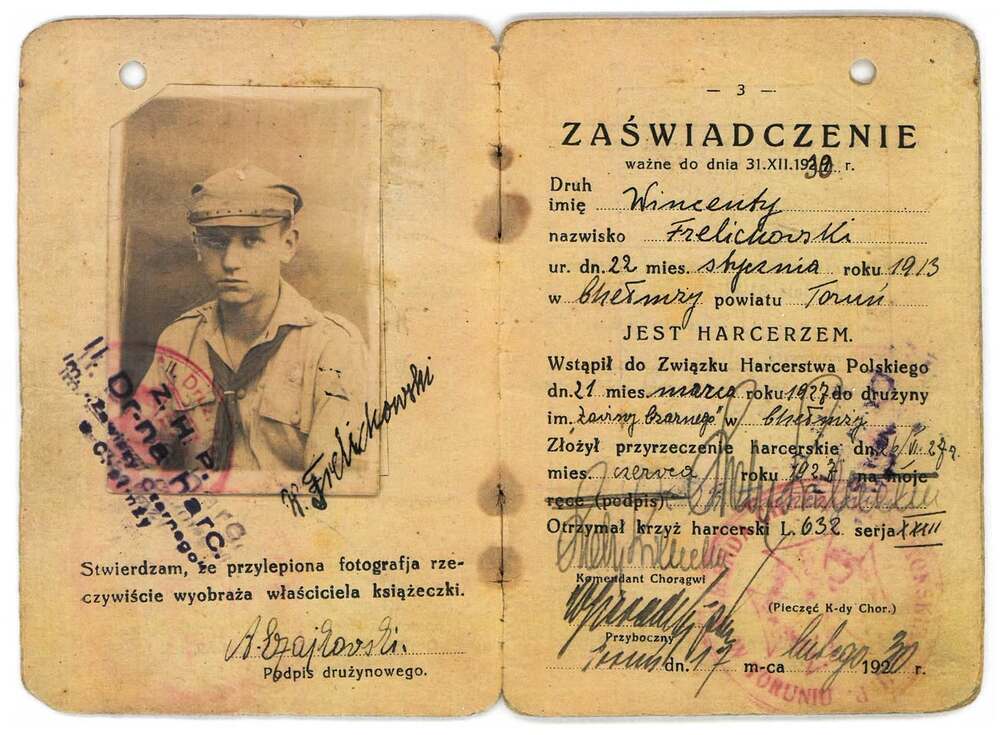 W. Frelichowski
II. Dr-na Harc.
Z. H. P.
im. Zawiszy Czarnego
w Chełmży
Stwierdzam, że przylepiona fotografja rze-
czywiście wyobraża właściciela książeczki.
A. Czajkowski.
Podpis drużynowego.
— 3 —
ZAŚWIADCZENIE
ważne do dnia 31.XII.1930 r.
Druh
imię Wincenty
nazwisko Frelichowski
ur. dn. 22 mies. stycznia roku 1913
w Chełmży powiatu Toruń
JEST HARCERZEM.
Wstąpił do Związku Harcerstwa Polskiego
dn. 21 mies. marca roku 1927 do drużyny
im. "Zawiszy Czarnego" w Chełmży
Złożył przyrzeczenie harcerskie dn.
mies. czerwca roku 1927 na moje
ręce (podpis)
Otrzymał krzyż harcerski L. 632 serja XXIII
Komendant Chorągwi
(Pieczęć K-dy Chor.)
Przyboczny
Toruń dn. 17 m-ca lutego 1930 r.
TORUNIU